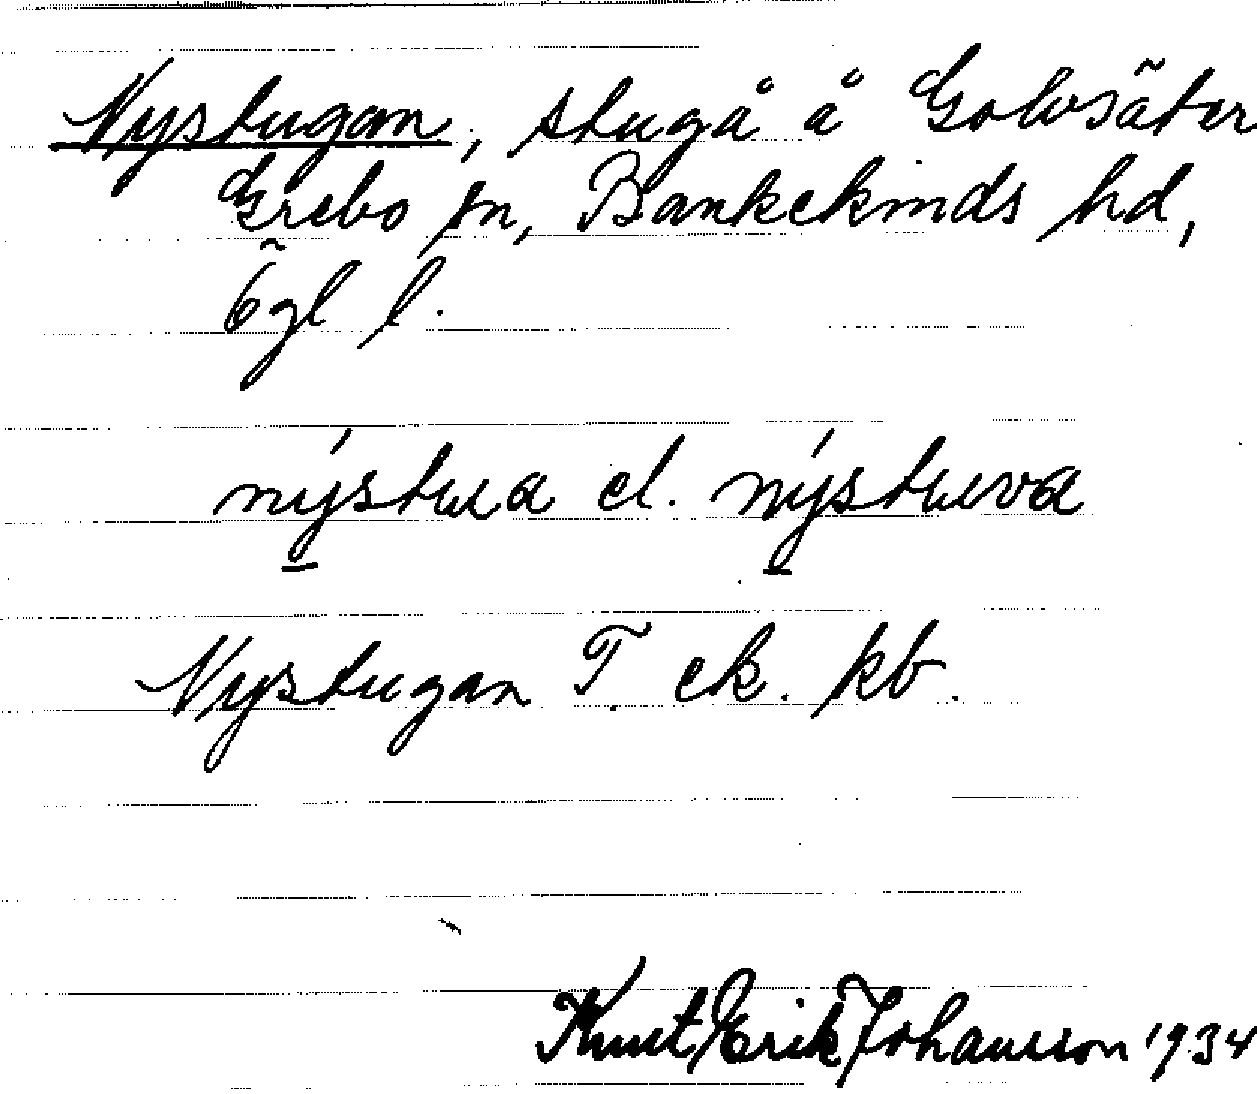 Nystugan, stuga å Golvsäter
Grebo sn, Bankekinds hd,
Ögl l.
nýstua el. nýstuva
Nystugan T ek. kb.
Knut Erik Johansson 1934